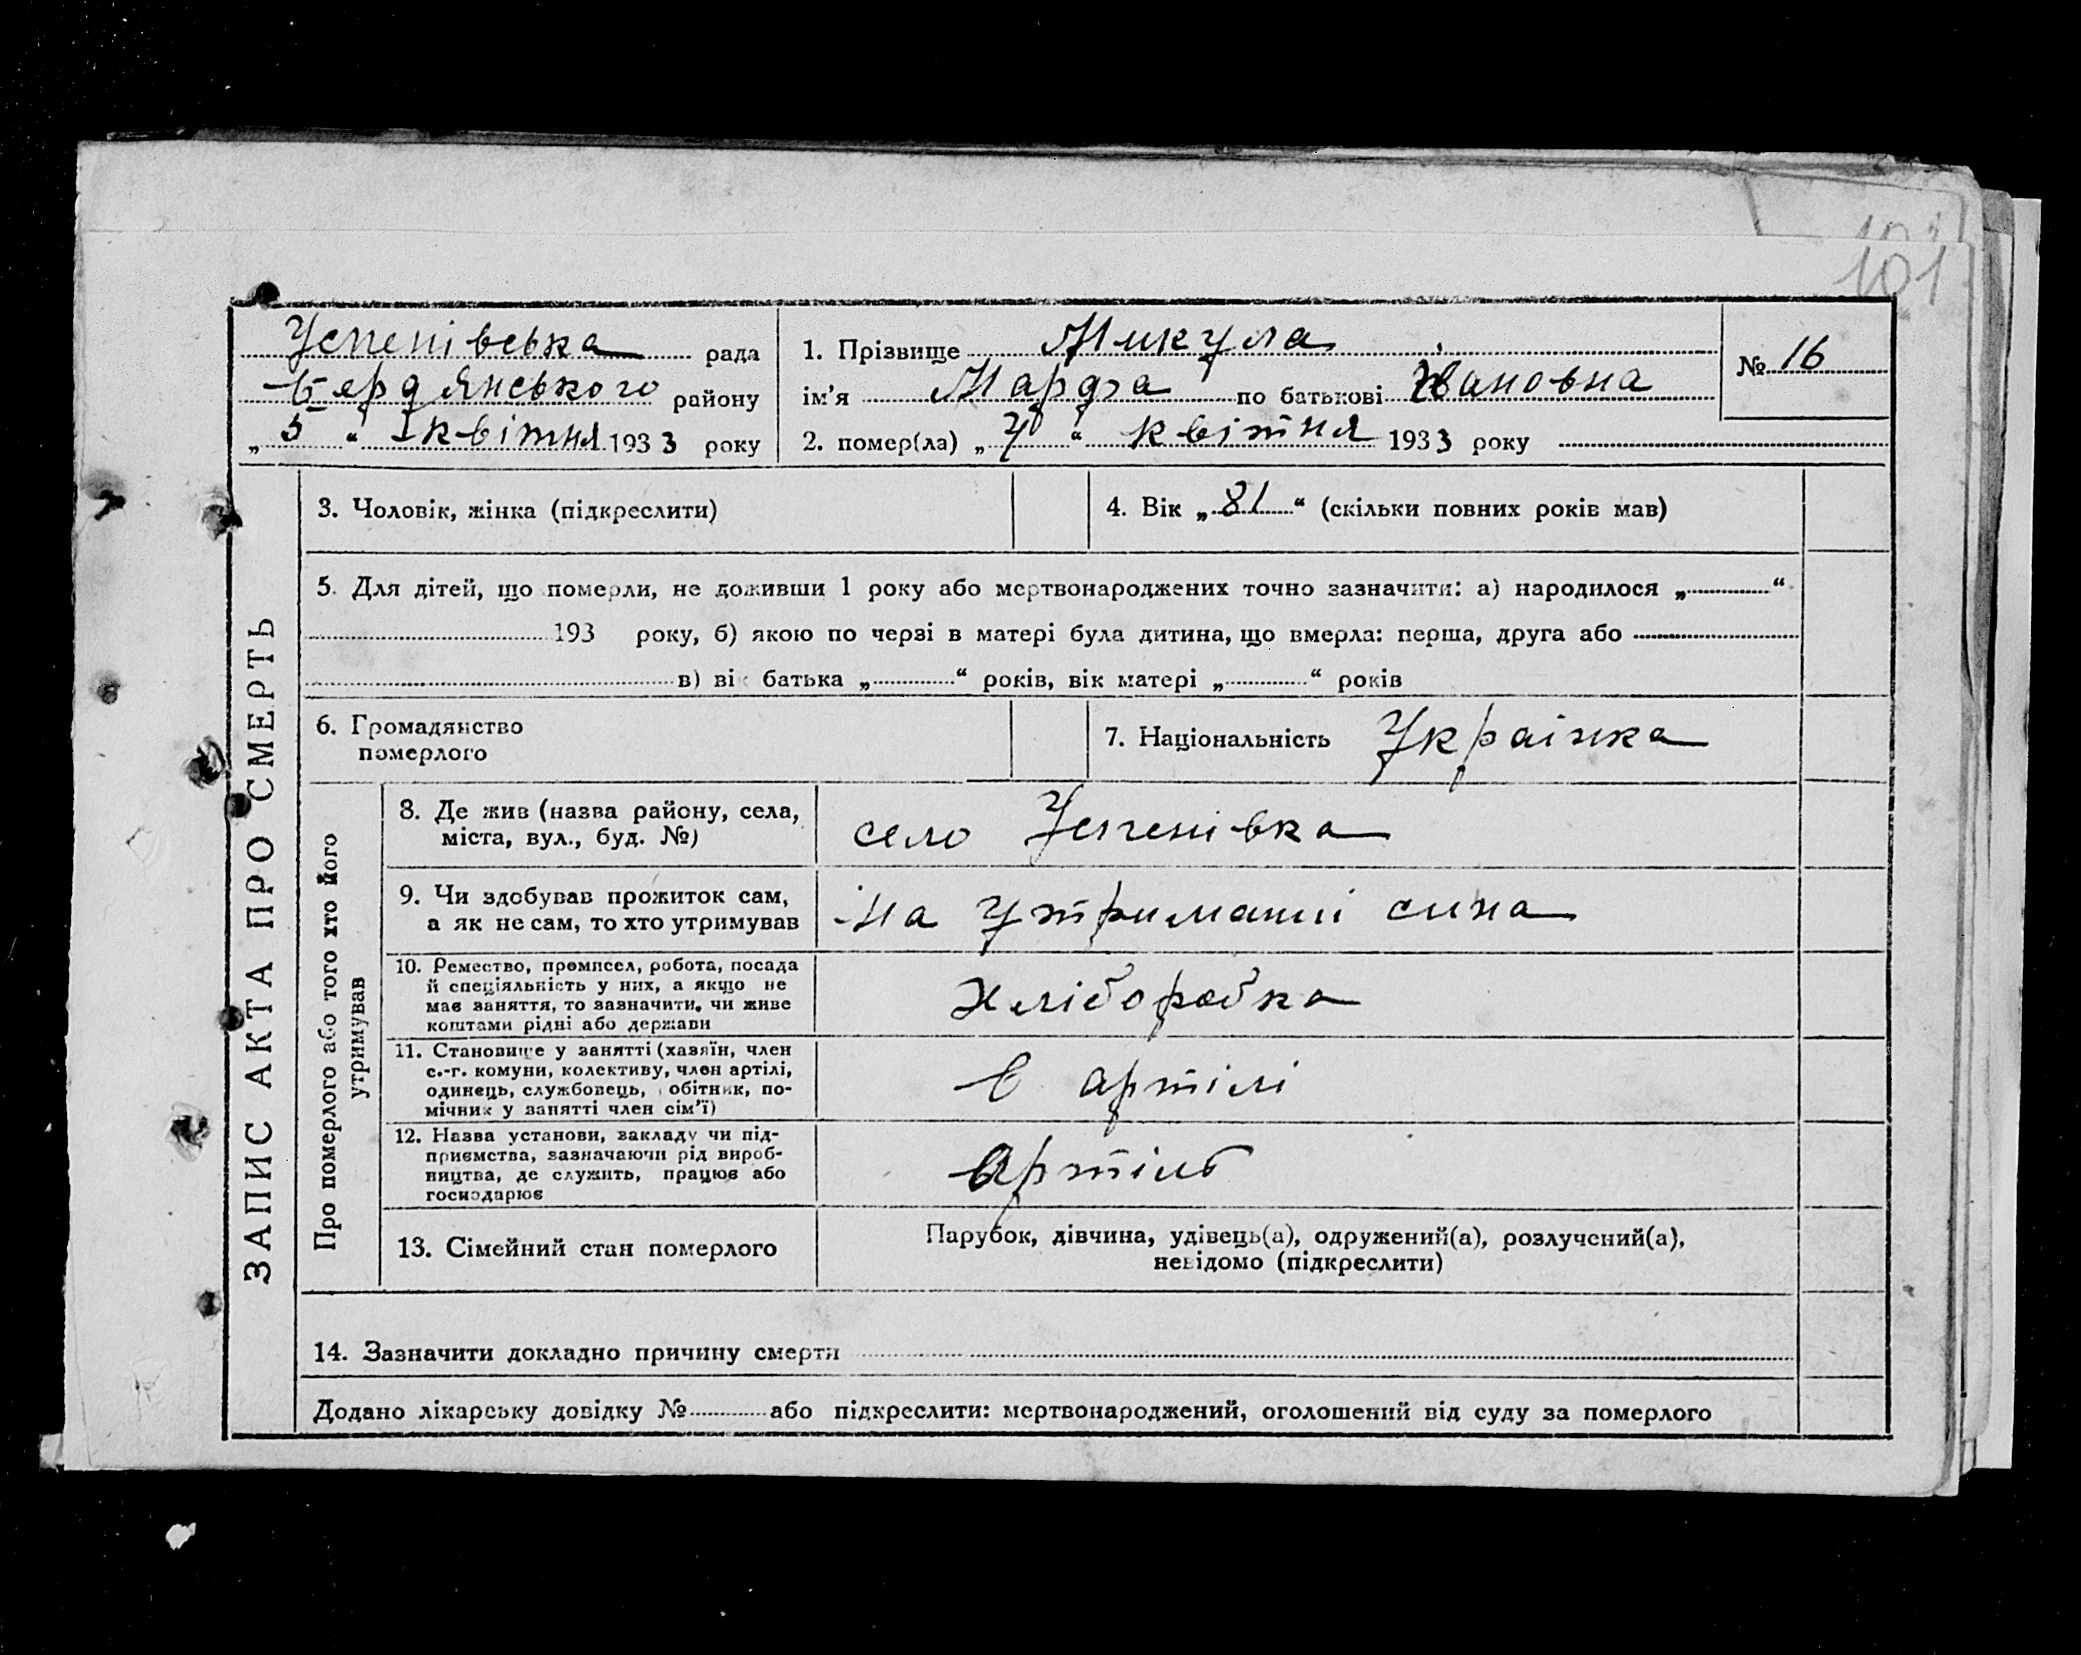 101
Успенівська рада
Бердянського району
„ 5 “ квітня 1933 року
1. Прізвище Микула
ім’я Марфа по батькові Ивановна
2. помер(ла) „ “ квітня 1933 року
№ 16
ЗАПИС АКТА ПРО СМЕРТЬ
3. Чоловік, жінка (підкреслити)
4. Вік „ 81 “ (скільки повних років мав)
5. Для дітей, що померли, не доживши 1 року або мертвонароджених точно зазначити: а) народилося „ “
193 року, б) якою по черзі в матері була дитина, що вмерла: перша, друга або
в) вік батька „ “ років, вік матері „ “ років
6. Громадянство
померлого
7. Національність Украінка
Про померлого або того хто його
утримував
8. Де жив (назва району, села,
міста, вул., буд. №)
село Успенівка
9. Чи здобував прожиток сам,
а як не сам, то хто утримував
на утриманні сина
10. Ремество, промисел, робота, посада
й спеціяльність у них, а якщо не
має заняття, то зазначити, чи живе
коштами рідні або держави
хліборобка
11. Становище у занятті (хазяїн, член
с.-г. комуни, колективу, член артілі,
одинець, службовець, обітник, по-
мічник у занятті член сім’ї)
в артілі
12. Назва установи, закладу чи під-
приємства, зазначаючи рід вироб-
ництва, де служить, працює або
господарює
Артіль
13. Сімейний стан померлого
Парубок, дівчина, удівець(а), одружений(а), розлучений(а),
невідомо (підкреслити)
14. Зазначити докладно причину смерти
Додано лікарську довідку № або підкреслити: мертвонароджений, оголошений від суду за померлого